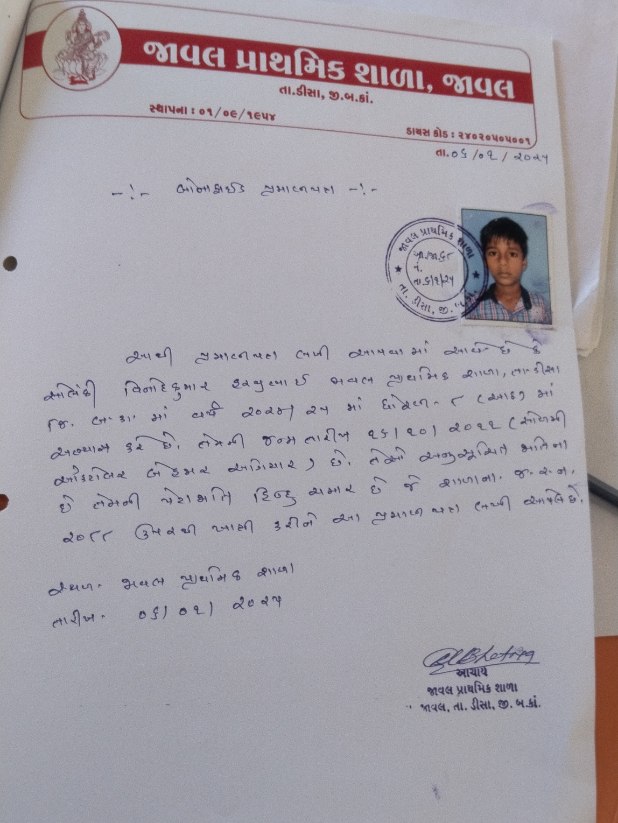 જાવલ પ્રાથમિક શાળા, જાવલ
તા.ડીસા, જી.બ.કાં.
સ્થાપના : ૦૧/૦૯/૧૯૫૪
ડાયસ કોડ : ૨૪૦૨૦૫૦૫૦૦૧
તા.૦૬/૦૧/૨૦૨૫
-:- બોનાફાઈડ પ્રમાણપત્ર -:-
જાવલ પ્રાથમિક શાળા
તા. ડીસા, જી. બ.કાં.
આથી પ્રમાણપત્ર લખી આપવામાં આવે છે કે
સોલંકી વિનોદકુમાર જાવલ પ્રાથમિક શાળા, તા-ડીસા
જિ. બ.કાં. માં વર્ષ ૨૦૨૪/૨૫ માં ધોરણ- ૮ (આઠ) માં
અભ્યાસ કરે છે. તેમની જન્મ તારીખ ૧૬/૧૦/૨૦૧૧ (સોળમી
ઓક્ટોબર બેહજાર અગિયાર) છે. તેઓ અનુસૂચિત જાતિના
છે તેમની પેટાજાતિ હિન્દુ ચમાર છે જે શાળાના જ.ર.નં.
૨૦૮૮ ઉપરથી ખાત્રી કરીને આ પ્રમાણપત્ર લખી આપેલ છે.
સ્થળ- જાવલ પ્રાથમિક શાળા
તારીખ- ૦૬/૦૧/૨૦૨૫
આચાર્ય
જાવલ પ્રાથમિક શાળા
જાવલ, તા. ડીસા, જી. બ.કાં.